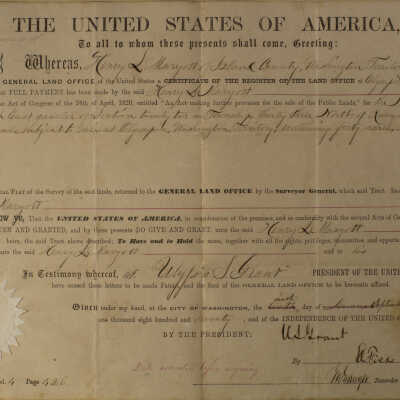 THE UNITED STATES OF AMERICA,
To all to whom these presents shall come, Greeting:
Whereas, Henry L. Maryott of Island County, Washington
GENERAL LAND OFFICE of the United States a CERTIFICATE OF THE REGISTER OF THE LAND OFFICE at
FULL PAYMENT has been made by the said Henry L. Maryott
Act of Congress of the 24th of April, 1820, entitled "An act making further provision for the sale of the Public Lands," for the
East quarter of Section twenty two in Township thirty three North of
Lands subject to Sale at Olympia Washington Territory containing forty acres
Plat of the Survey of the said lands, returned to the GENERAL LAND OFFICE by the Surveyor General, which said Tract
Maryott
YE, That the UNITED STATES OF AMERICA, in consideration of the premises, and in conformity with the several Acts of
GIVEN AND GRANTED, and by these presents DO GIVE AND GRANT, unto the said Henry L. Maryott
heirs, the said Tract above described; To Have and to Hold the same, together with all the rights, privileges, immunities, and
unto the said Henry L. Maryott and to his
In Testimony whereof, I, Ulysses S. Grant PRESIDENT OF THE UNITED
have caused these letters to be made Patent, and the Seal of the GENERAL LAND OFFICE to be hereunto affixed.
GIVEN under my hand, at the CITY OF WASHINGTON, the day of
one thousand eight hundred and seventy, and of the INDEPENDENCE OF THE UNITED
BY THE PRESIDENT: U.S. Grant
By
4 Page 426